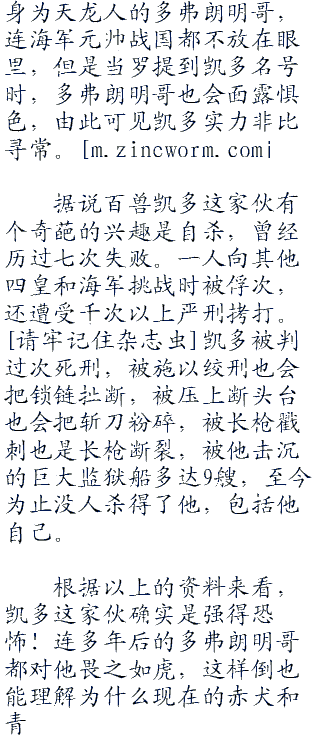 身为天龙人的多弗朗明哥，
连海军元帅战国都不放在眼
里，但是当罗提到凯多名号
时，多弗朗明哥也会面露惧
色，由此可见凯多实力非比
寻常。[m.zincworm.com¡
据说百兽凯多这家伙有
个奇葩的兴趣是自杀，曾经
历过七次失败。一人向其他
四皇和海军挑战时被俘次，
还遭受千次以上严刑拷打。
[请牢记住杂志虫]凯多被判
过次死刑，被施以绞刑也会
把锁链扯断，被压上断头台
也会把斩刀粉碎，被长枪戳
刺也是长枪断裂，被他击沉
的巨大监狱船多达9艘，至今
为止没人杀得了他，包括他
自己。
根据以上的资料来看，
凯多这家伙确实是强得恐
怖！连多年后的多弗朗明哥
都对他畏之如虎，这样倒也
能理解为什么现在的赤犬和
青